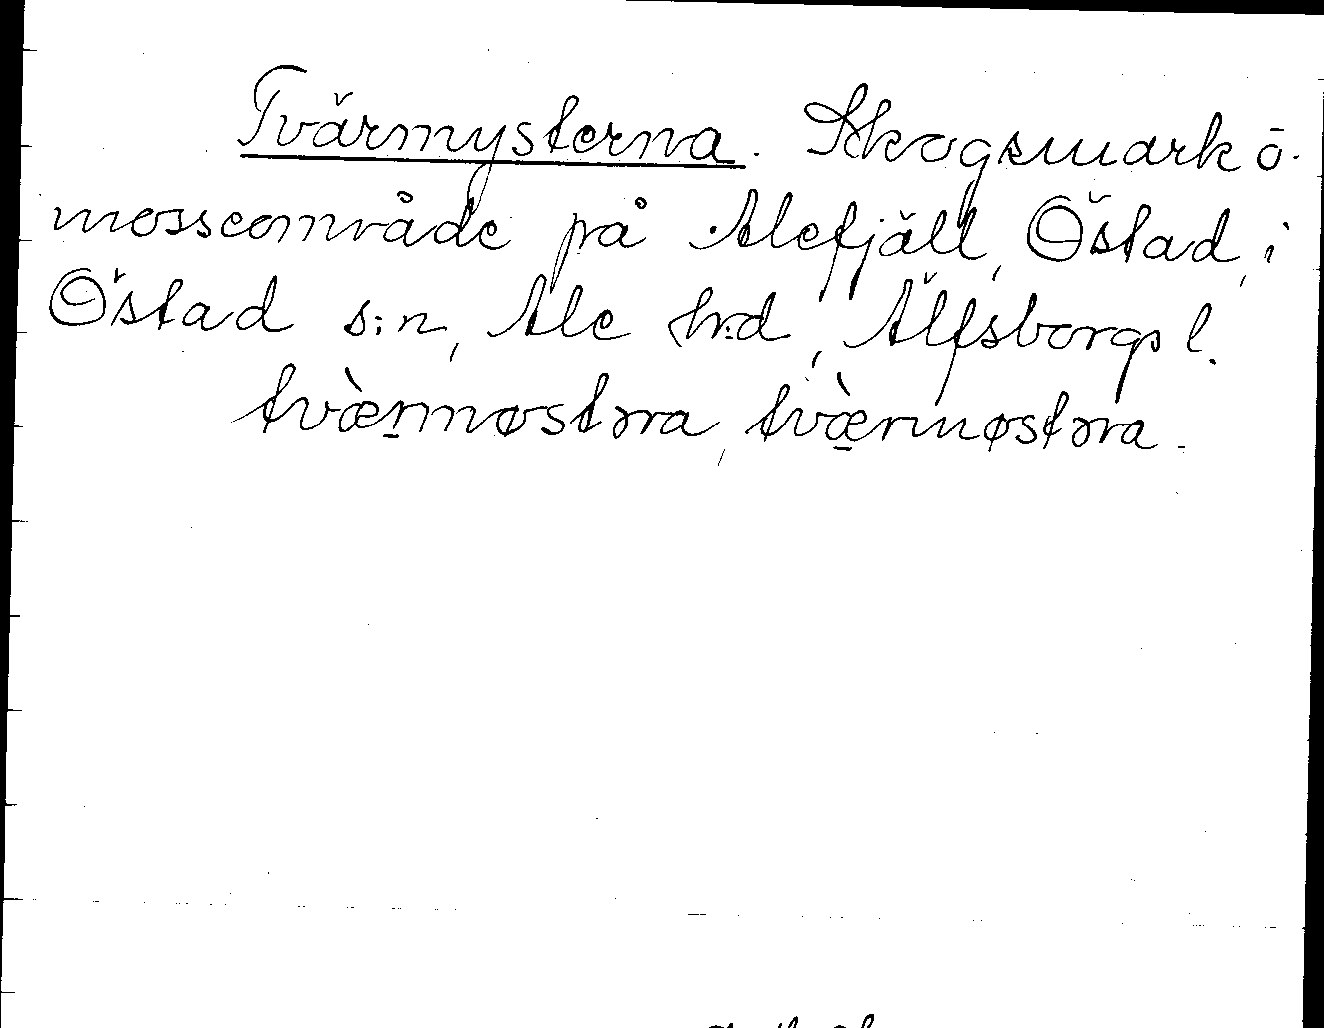 Tvärmysterna. Skogsmark ō.
mosseområde på Alefjäll, Östad, i
Östad s:n, Ale h:d, Älfsborgs l.
tvæ̀rmøstəra, tvæ̀rmøstəra.